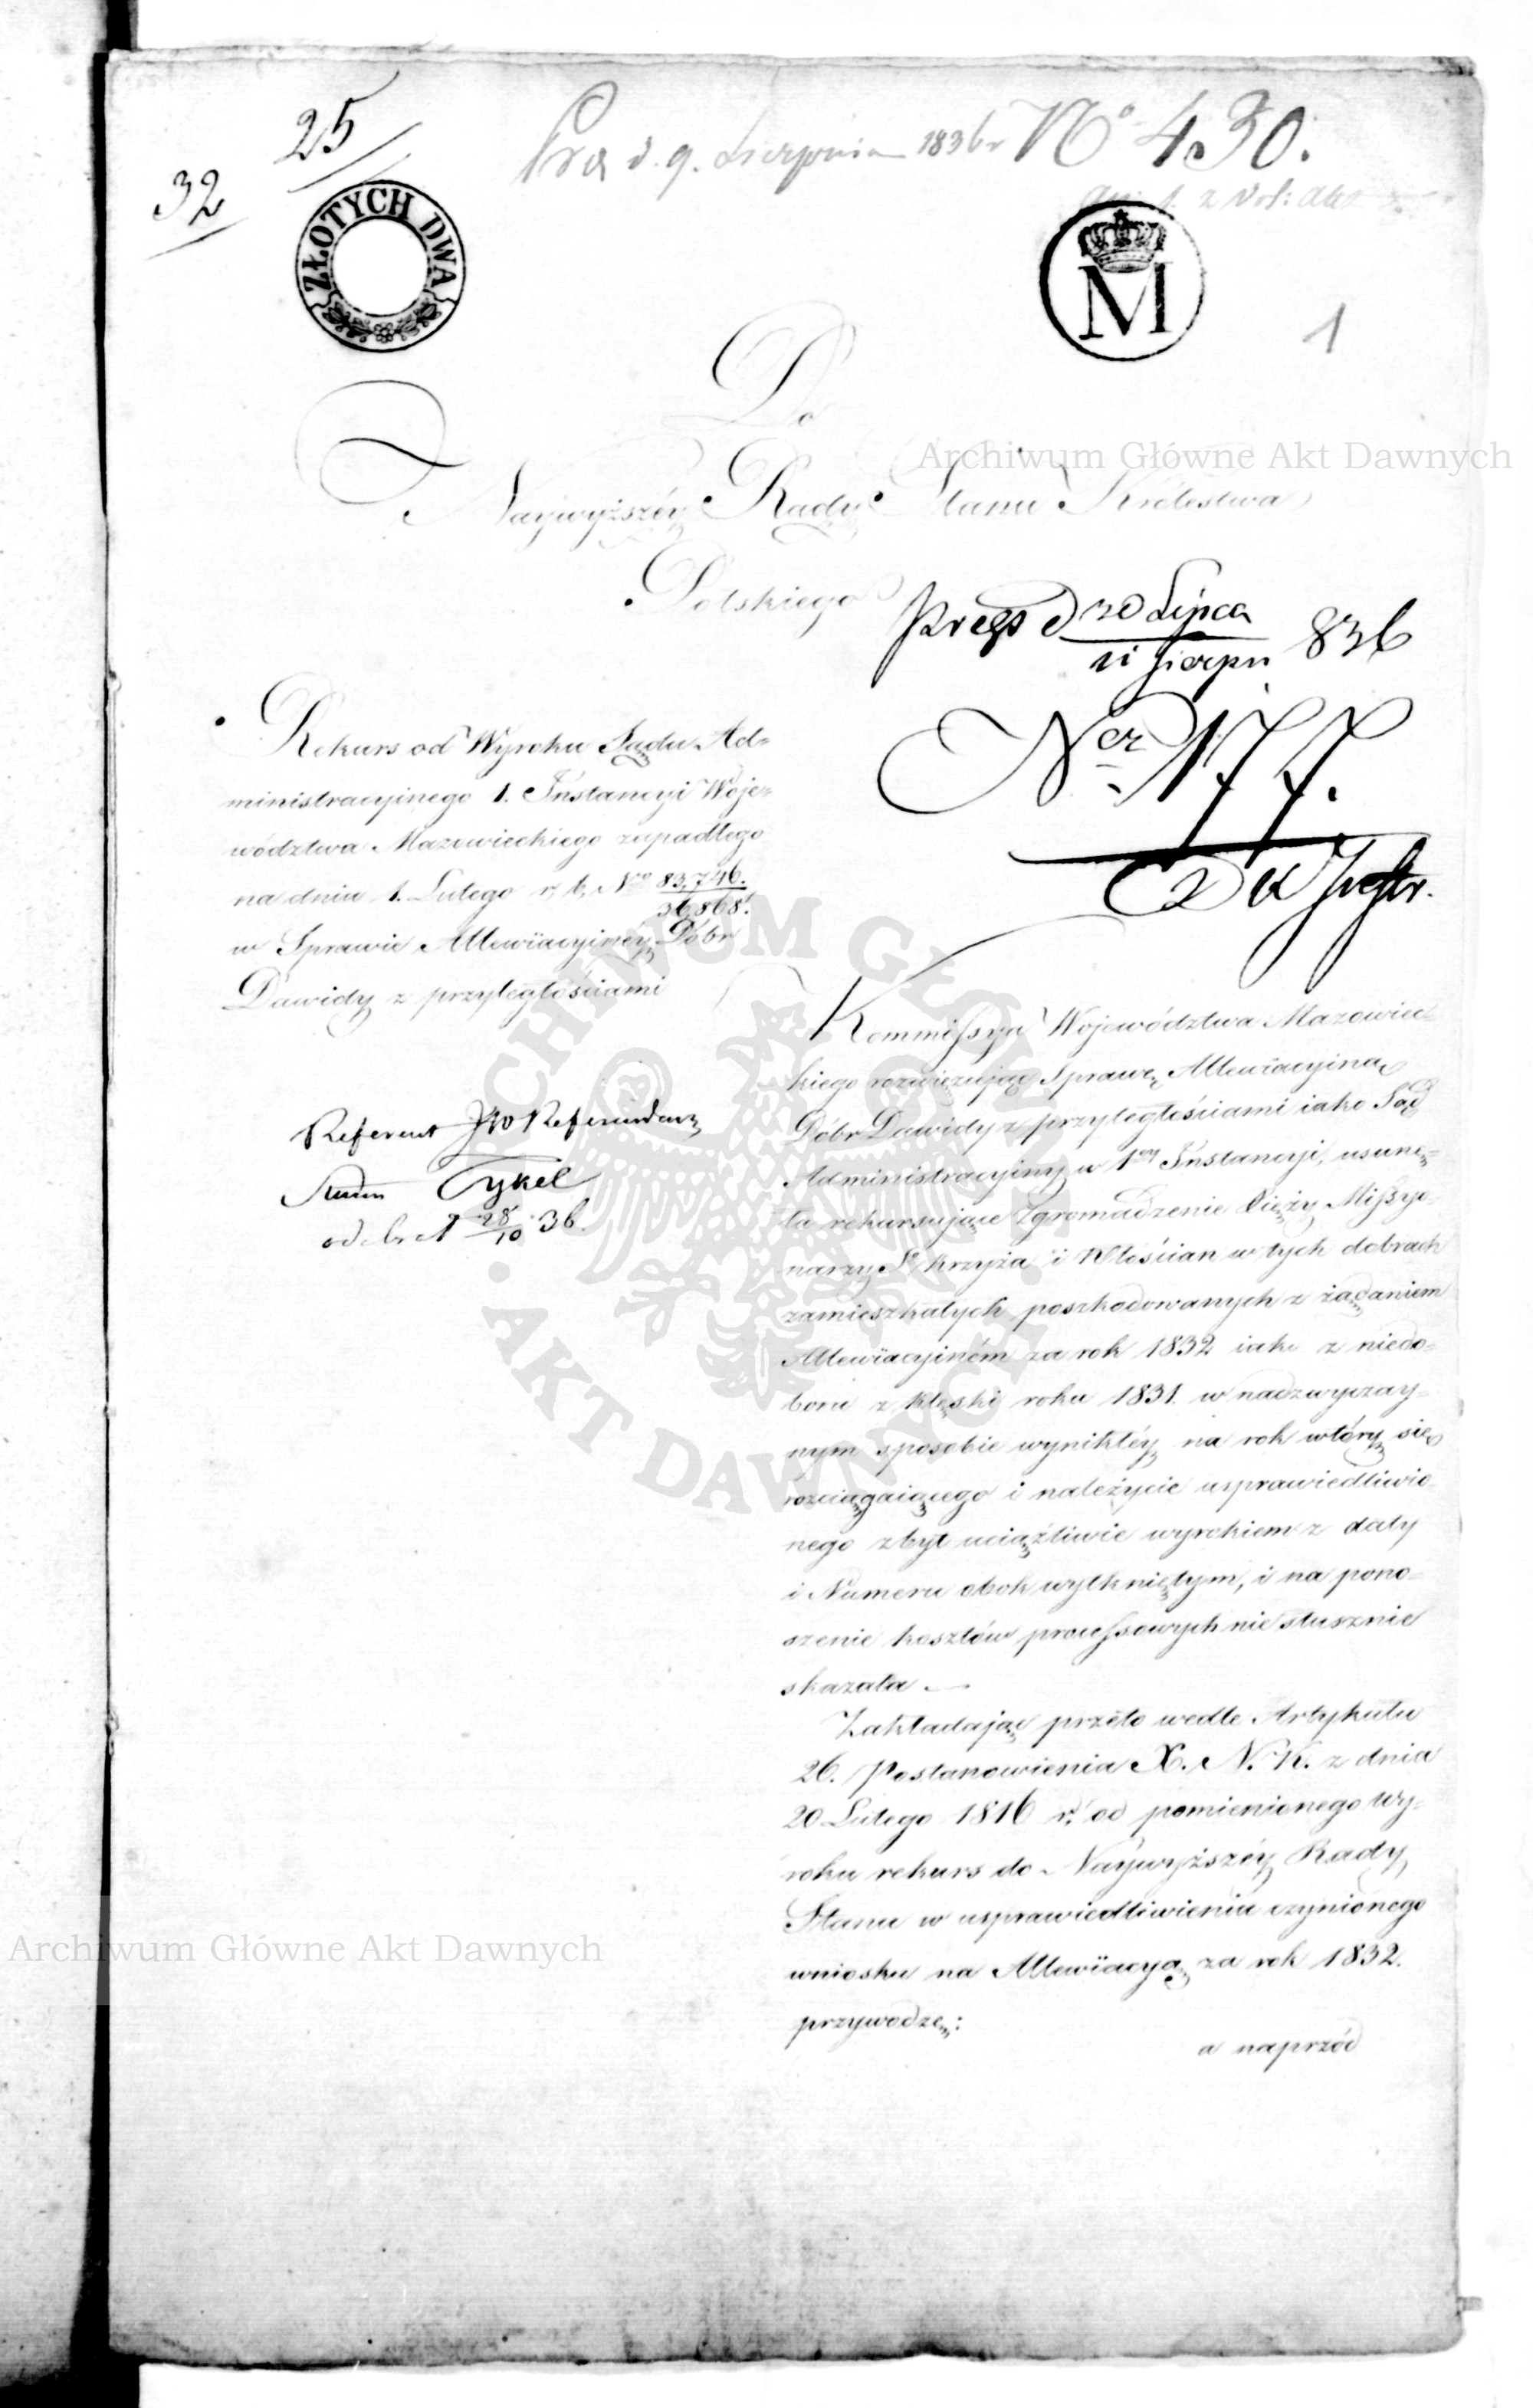 25
32
Prez d. 9. Sierpnia 1836 r N° 430.
ZŁOTYCH DWA
M
1
Do
Naywyższéy Rady Stanu Królestwa
Polskiego
Prez d 20 Lipca
11 Sierpn 836
Ner 177.
Rekurs od Wyroku Sądu Ad=
ministracyinego 1. Instancyi Woje=
wództwa Mazowieckiego zapadłego
na dniu 1. Lutego r. b. Nro 83,746.
36,868.
w Sprawie Allewiacyiney Dóbr
Dawidy z przyległościami
Referent JW Referendarz
Stanu Tykel
odebrał 28/10 36.
Kommissya Województwa Mazowiec=
kiego rozwiązując Sprawę Allewiacyiną
Dóbr Dawidy z przyległościami iako Sąd
Administracyiny w 1ey Instancyi, usunę=
ła rekursujące Zgromadzenie Xięży Missyo=
narzy S° Krzyża i Włościan w tych dobrach
zamieszkałych poszkodowanych z żądaniem
Allewiacyiném za rok 1832 iako z niedo=
boru z klęski roku 1831. w nadzwyczay=
nym sposobie wynikłéy na rok wtóry się
rozciągaiącego i należycie usprawiedliwio=
nego zbyt uciążliwie wyrokiem z daty
i Numeru obok wytkniętym, i na pono=
szenie kosztów processowych niesłusznie
skazała.—
Zakładając przeto wedle Artykułu
26. Postanowienia X. N. K. z dnia
20 Lutego 1816 r. od pomienionego Wy=
roku rekurs do Naywyższéy Rady
Stanu w usprawiedliwieniu czynionego
wniosku na Allewiacyą za rok 1832.
przywodzę:
a naprzód
Archiwum Główne Akt Dawnych
ARCHIWUM GŁÓWNE
AKT DAWNYCH
Archiwum Główne Akt Dawnych